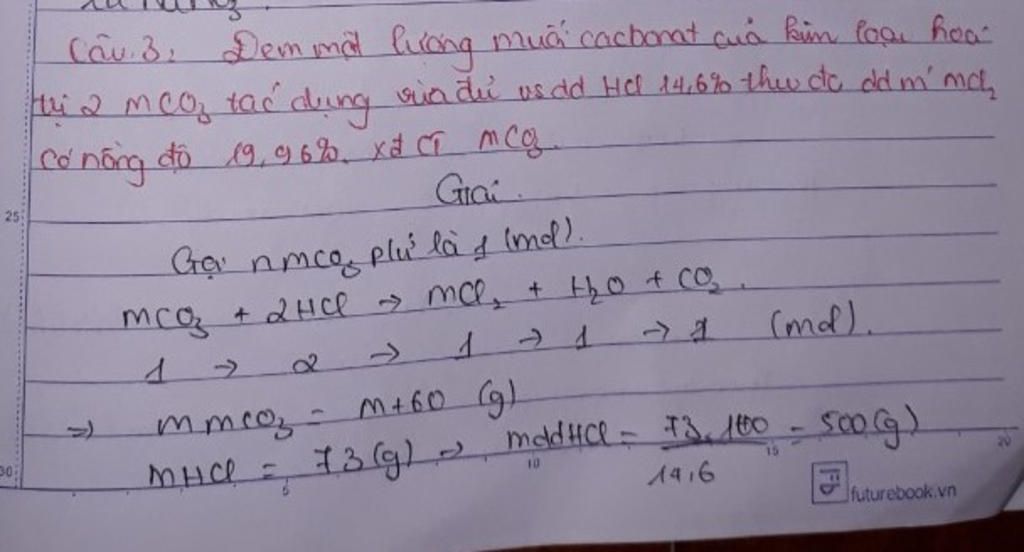 Câu 3: Đem một lượng muối cacbonat của kim loại hoá
trị 2 MCO₃ tác dụng vừa đủ vs dd HCl 14,6% thu đc dd m' MCl₂
có nồng độ 19,96%. xđ CT MCO₃.
Giải.
25
Gọi nMCO₃ pứ là 1 (mol).
MCO₃ + 2HCl → MCl₂ + H₂O + CO₂.
1 → 2 → 1 → 1 → 1 (mol).
⇒ mMCO₃ = M+60 (g)
mHCl = 73(g) → mddHCl = 73.100/14,6 = 500(g)
30 5 10 15 20
futurebook.vn